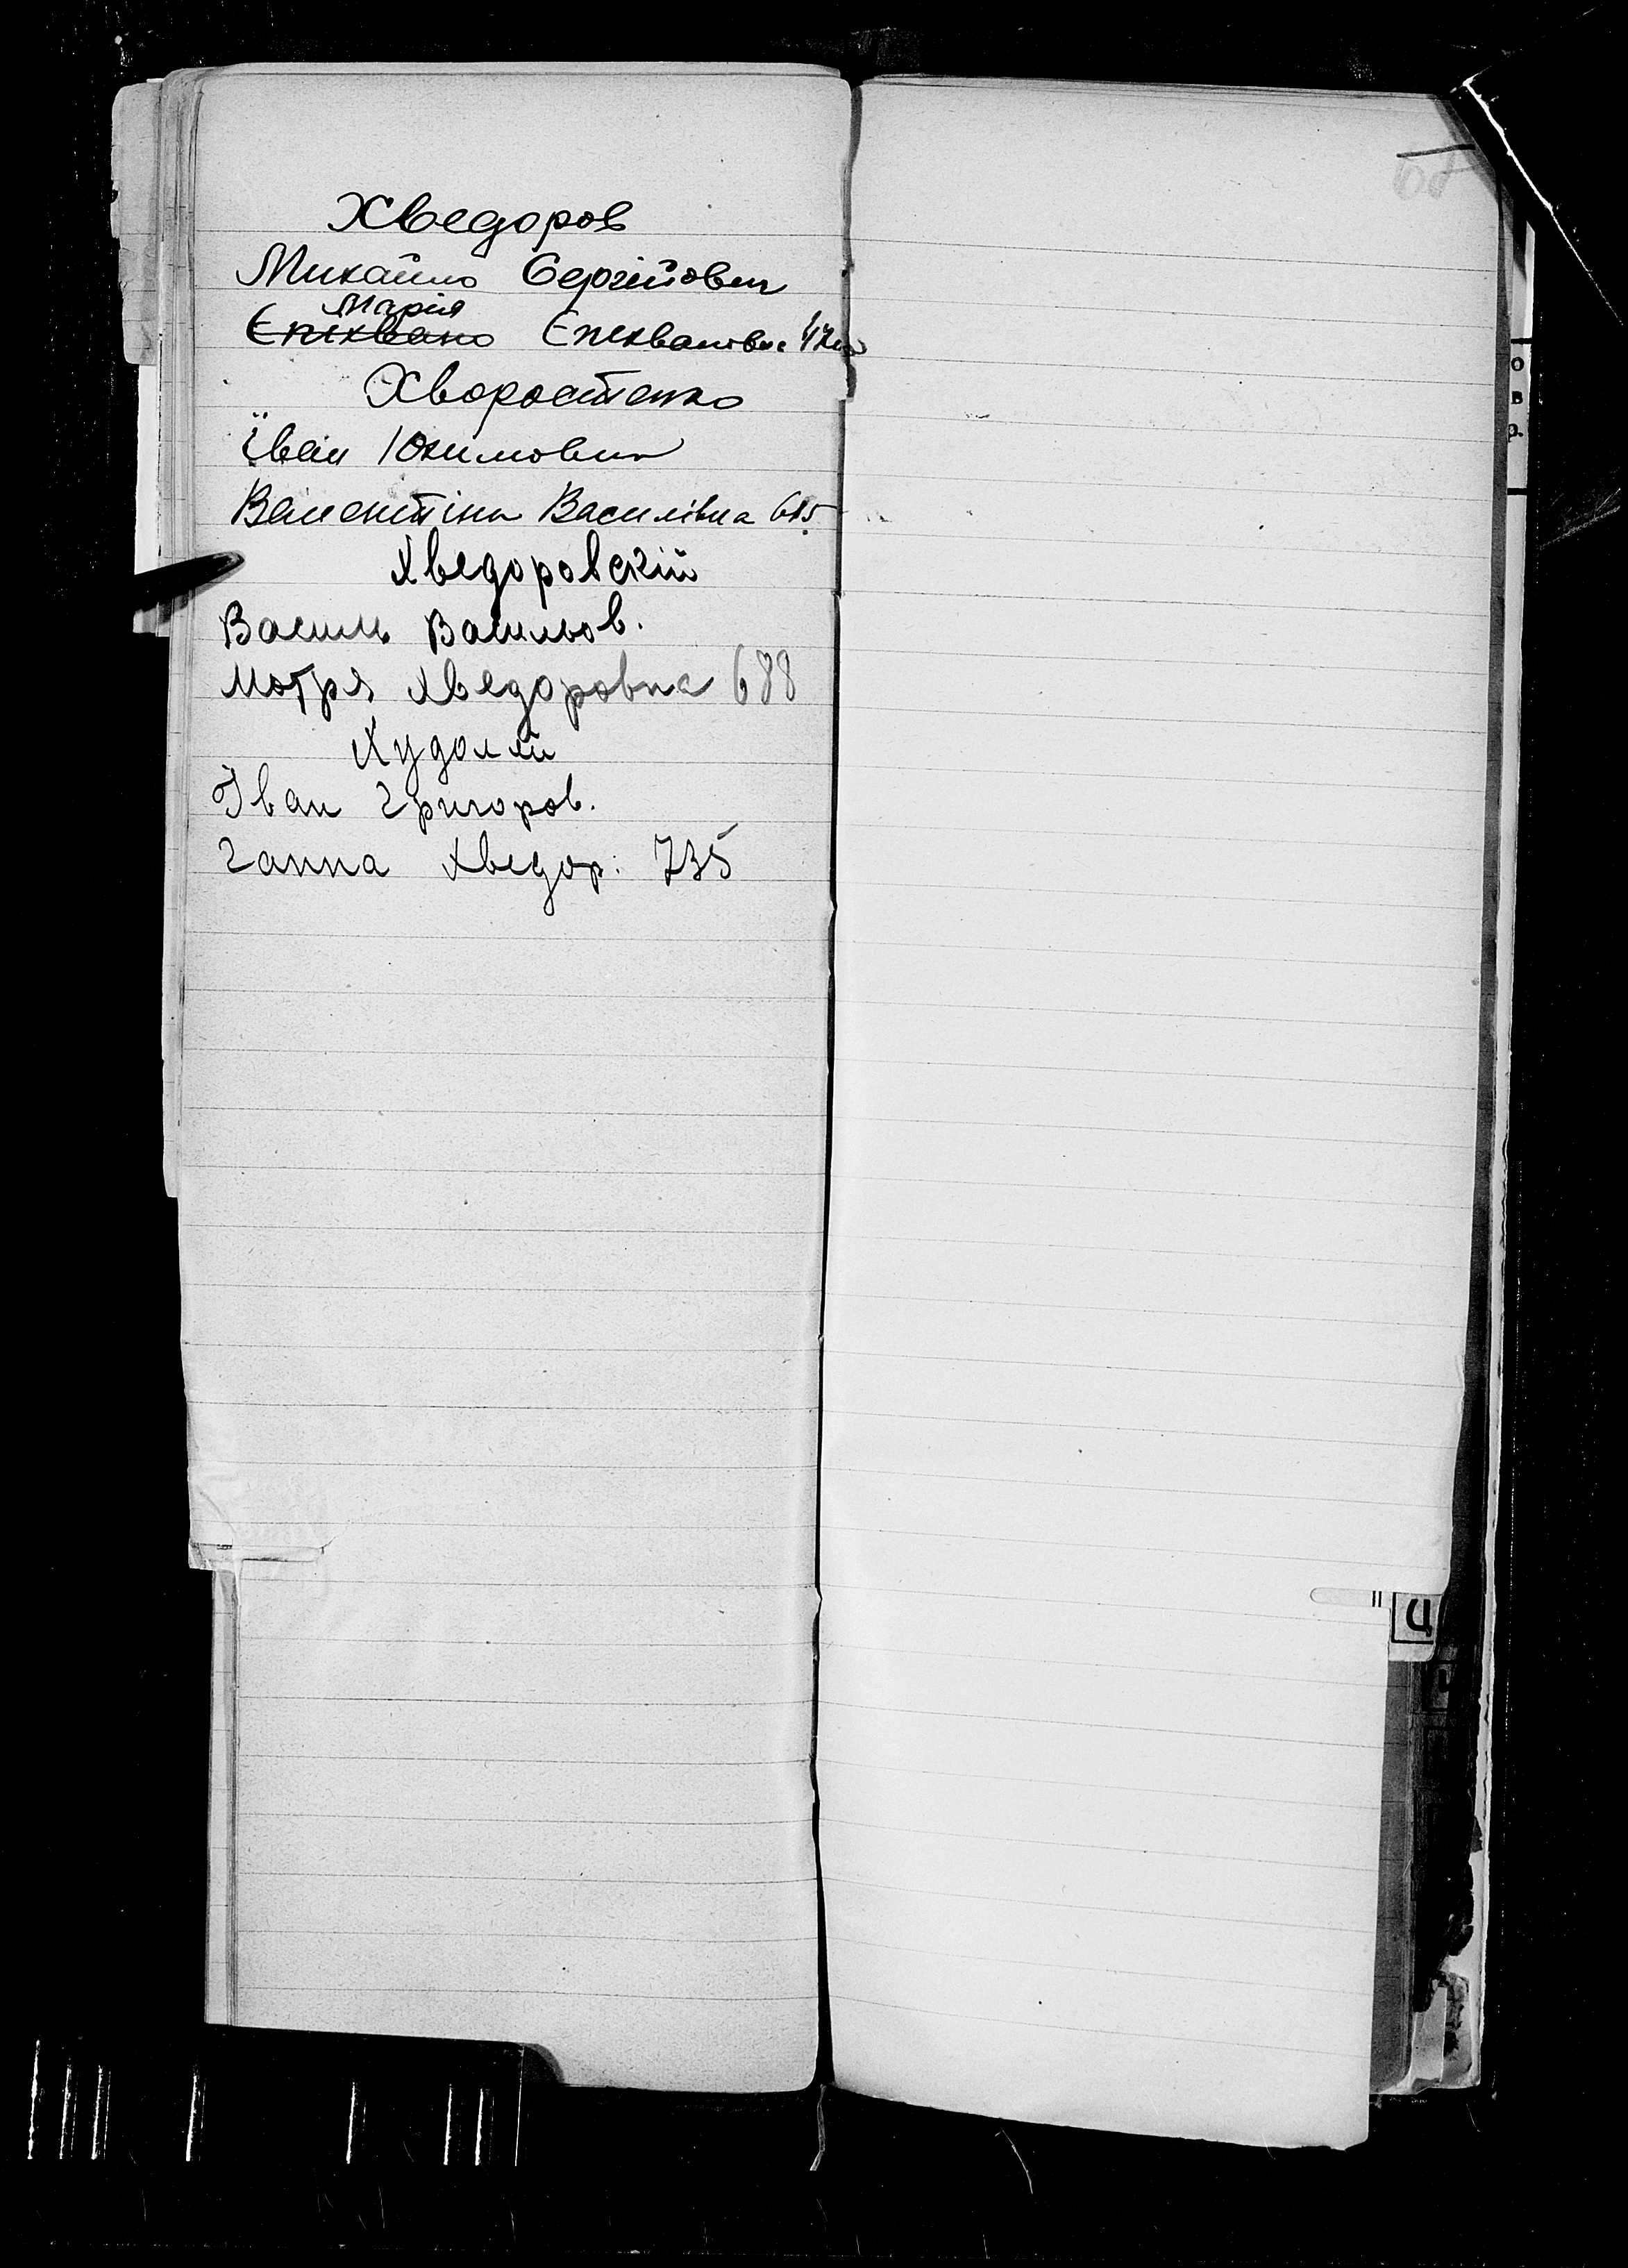 Хведоров
Михайло Сергійович
Мария
Епіхвано Епіхвановна
Хворостенко
Їван Юхимович
Валентіна Василівна 615
Хведоровский
Василь Васильов.
Мотря Хведоровна 688
Худолій
Іван Григоров.
Ганна Хведор: 735
68
о
в
р.
Ц